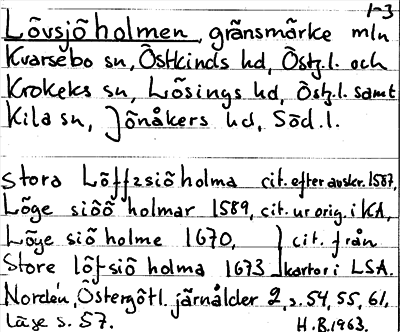 1-3
Lövsjöholmen, gränsmärke mln
Kvarsebo sn, Östkinds hd, Östg.l. och
Krokeks sn, Lösings hd, Östg.l. samt
Kila sn, Jönåkers hd, Söd.l.
Stora Löffzsiö holma cit. efter avskr. 1587,
Löge siöö holmar 1589, cit. ur orig. i KA,
Löye siö holme 1670, } cit. från
Store löfsiö holma 1673 kartor i LSA.
Nordén, Östergötl. järnålder 2, s. 54, 55, 61,
Läge s. 57. H.B. 1963.